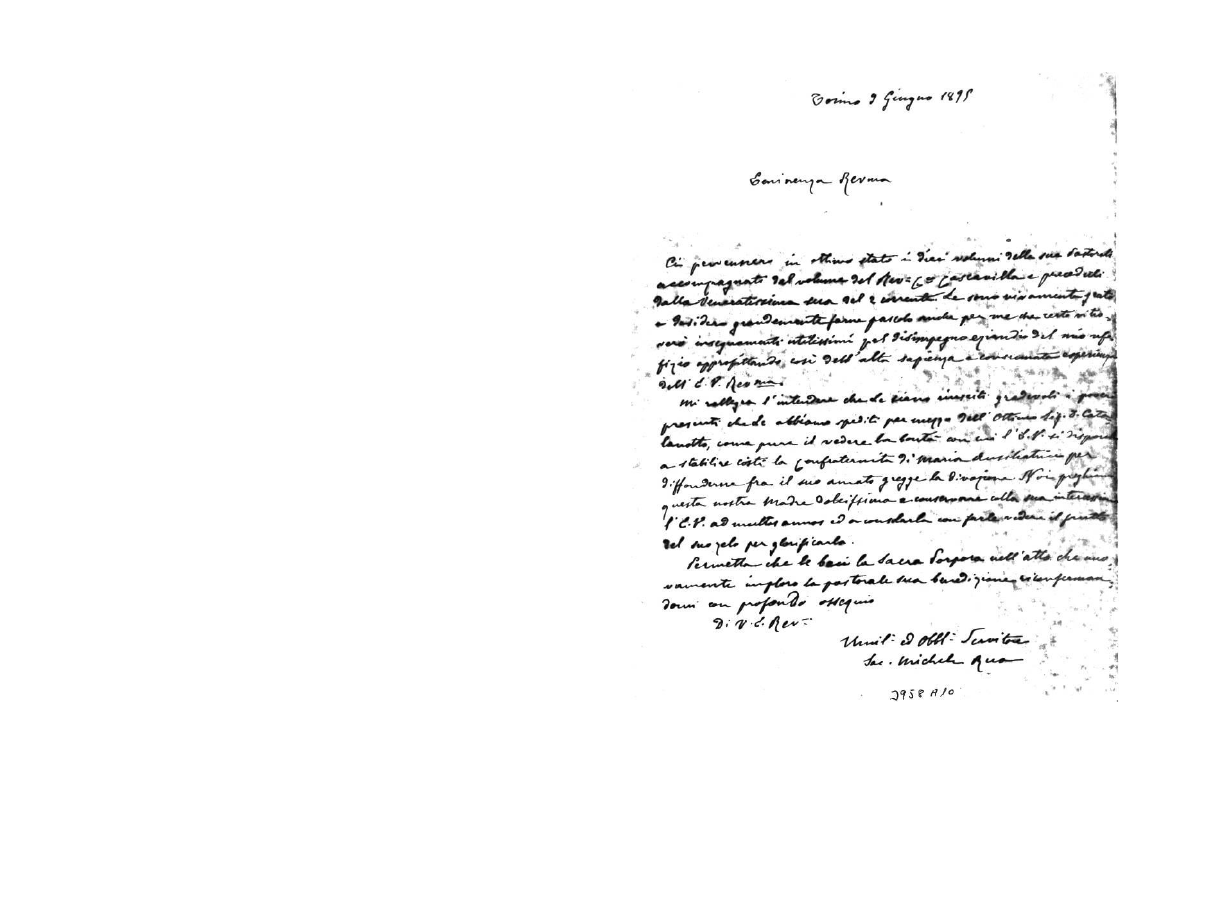 Torino 9 Giugno 1895
Eminenza Revma
Ci pervennero in ottimo stato i dieci volumi della sua Pastorali
accompagnati dal volume del Rev.º C.º Cascavilla e preceduti
dalla Veneratissima sua del 2 corrente. Le sono vivamente grato
e desidero grandemente farne pascolo anche per me che certo vi tro-
verò insegnamenti utilissimi pel disimpegno eziandio del mio uf-
fizio approfittando così dell'alta sapienza e consumata esperienza
dell'E. V. Revma.
Mi rallegra l'intendere che Le siano riusciti graditi i
presenti che Le abbiamo spediti per mezzo dell'Ottimo Sig. D. Cata
lanotto, come pure il vedere la bontà con cui l'E.V. si dispone
a stabilire costì la Confraternita di Maria Ausiliatrice per
diffonderne fra il suo amato gregge la divozione. Noi preghiamo
questa nostra Madre dolcissima a conservare colla sua intercessione
l'E.V. ad multos annos ed a consolarla con farle vedere il frutto
del suo zelo per glorificarla.
Permetta che le baci la Sacra Porpora nell'atto che nuo-
vamente imploro la pastorale sua benedizione, riconferman-
domi con profondo ossequio
Di V. E. Rev.
Umil. ed Obbl. Servitore
Sac. Michele Rua
3958 A10